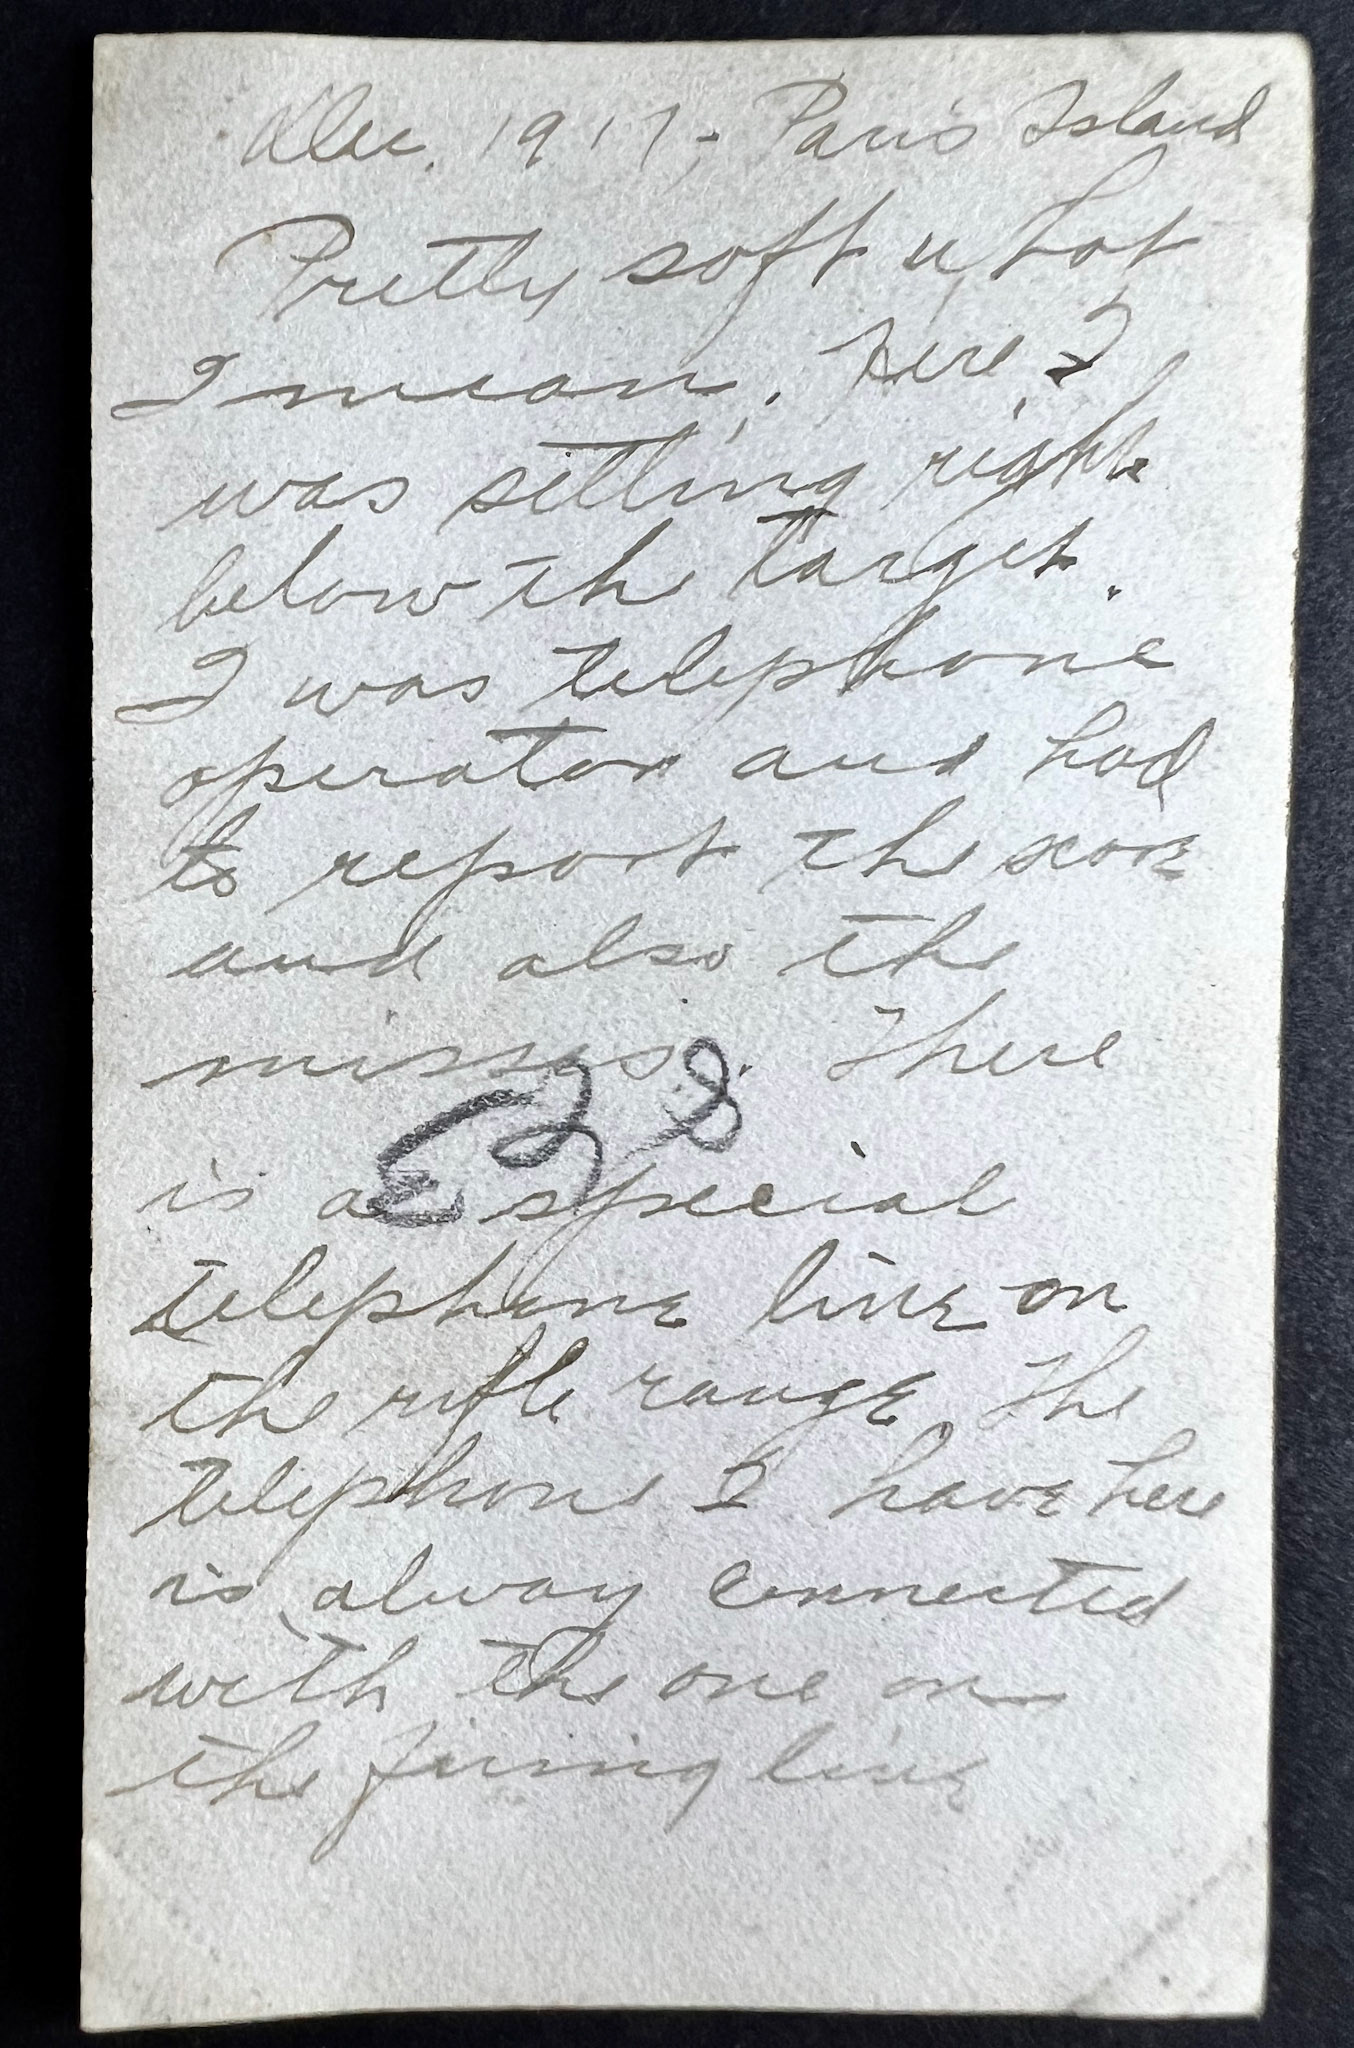 Dec. 1917; Paris Island
Pretty soft what
I mean. Here I
was sitting right
below the target.
I was telephone
operator and had
to report the score
and also the
misses. There
is a special
telephone line on
the rifle range. The
telephone I have here
is alway connected
with the one on
the firing line